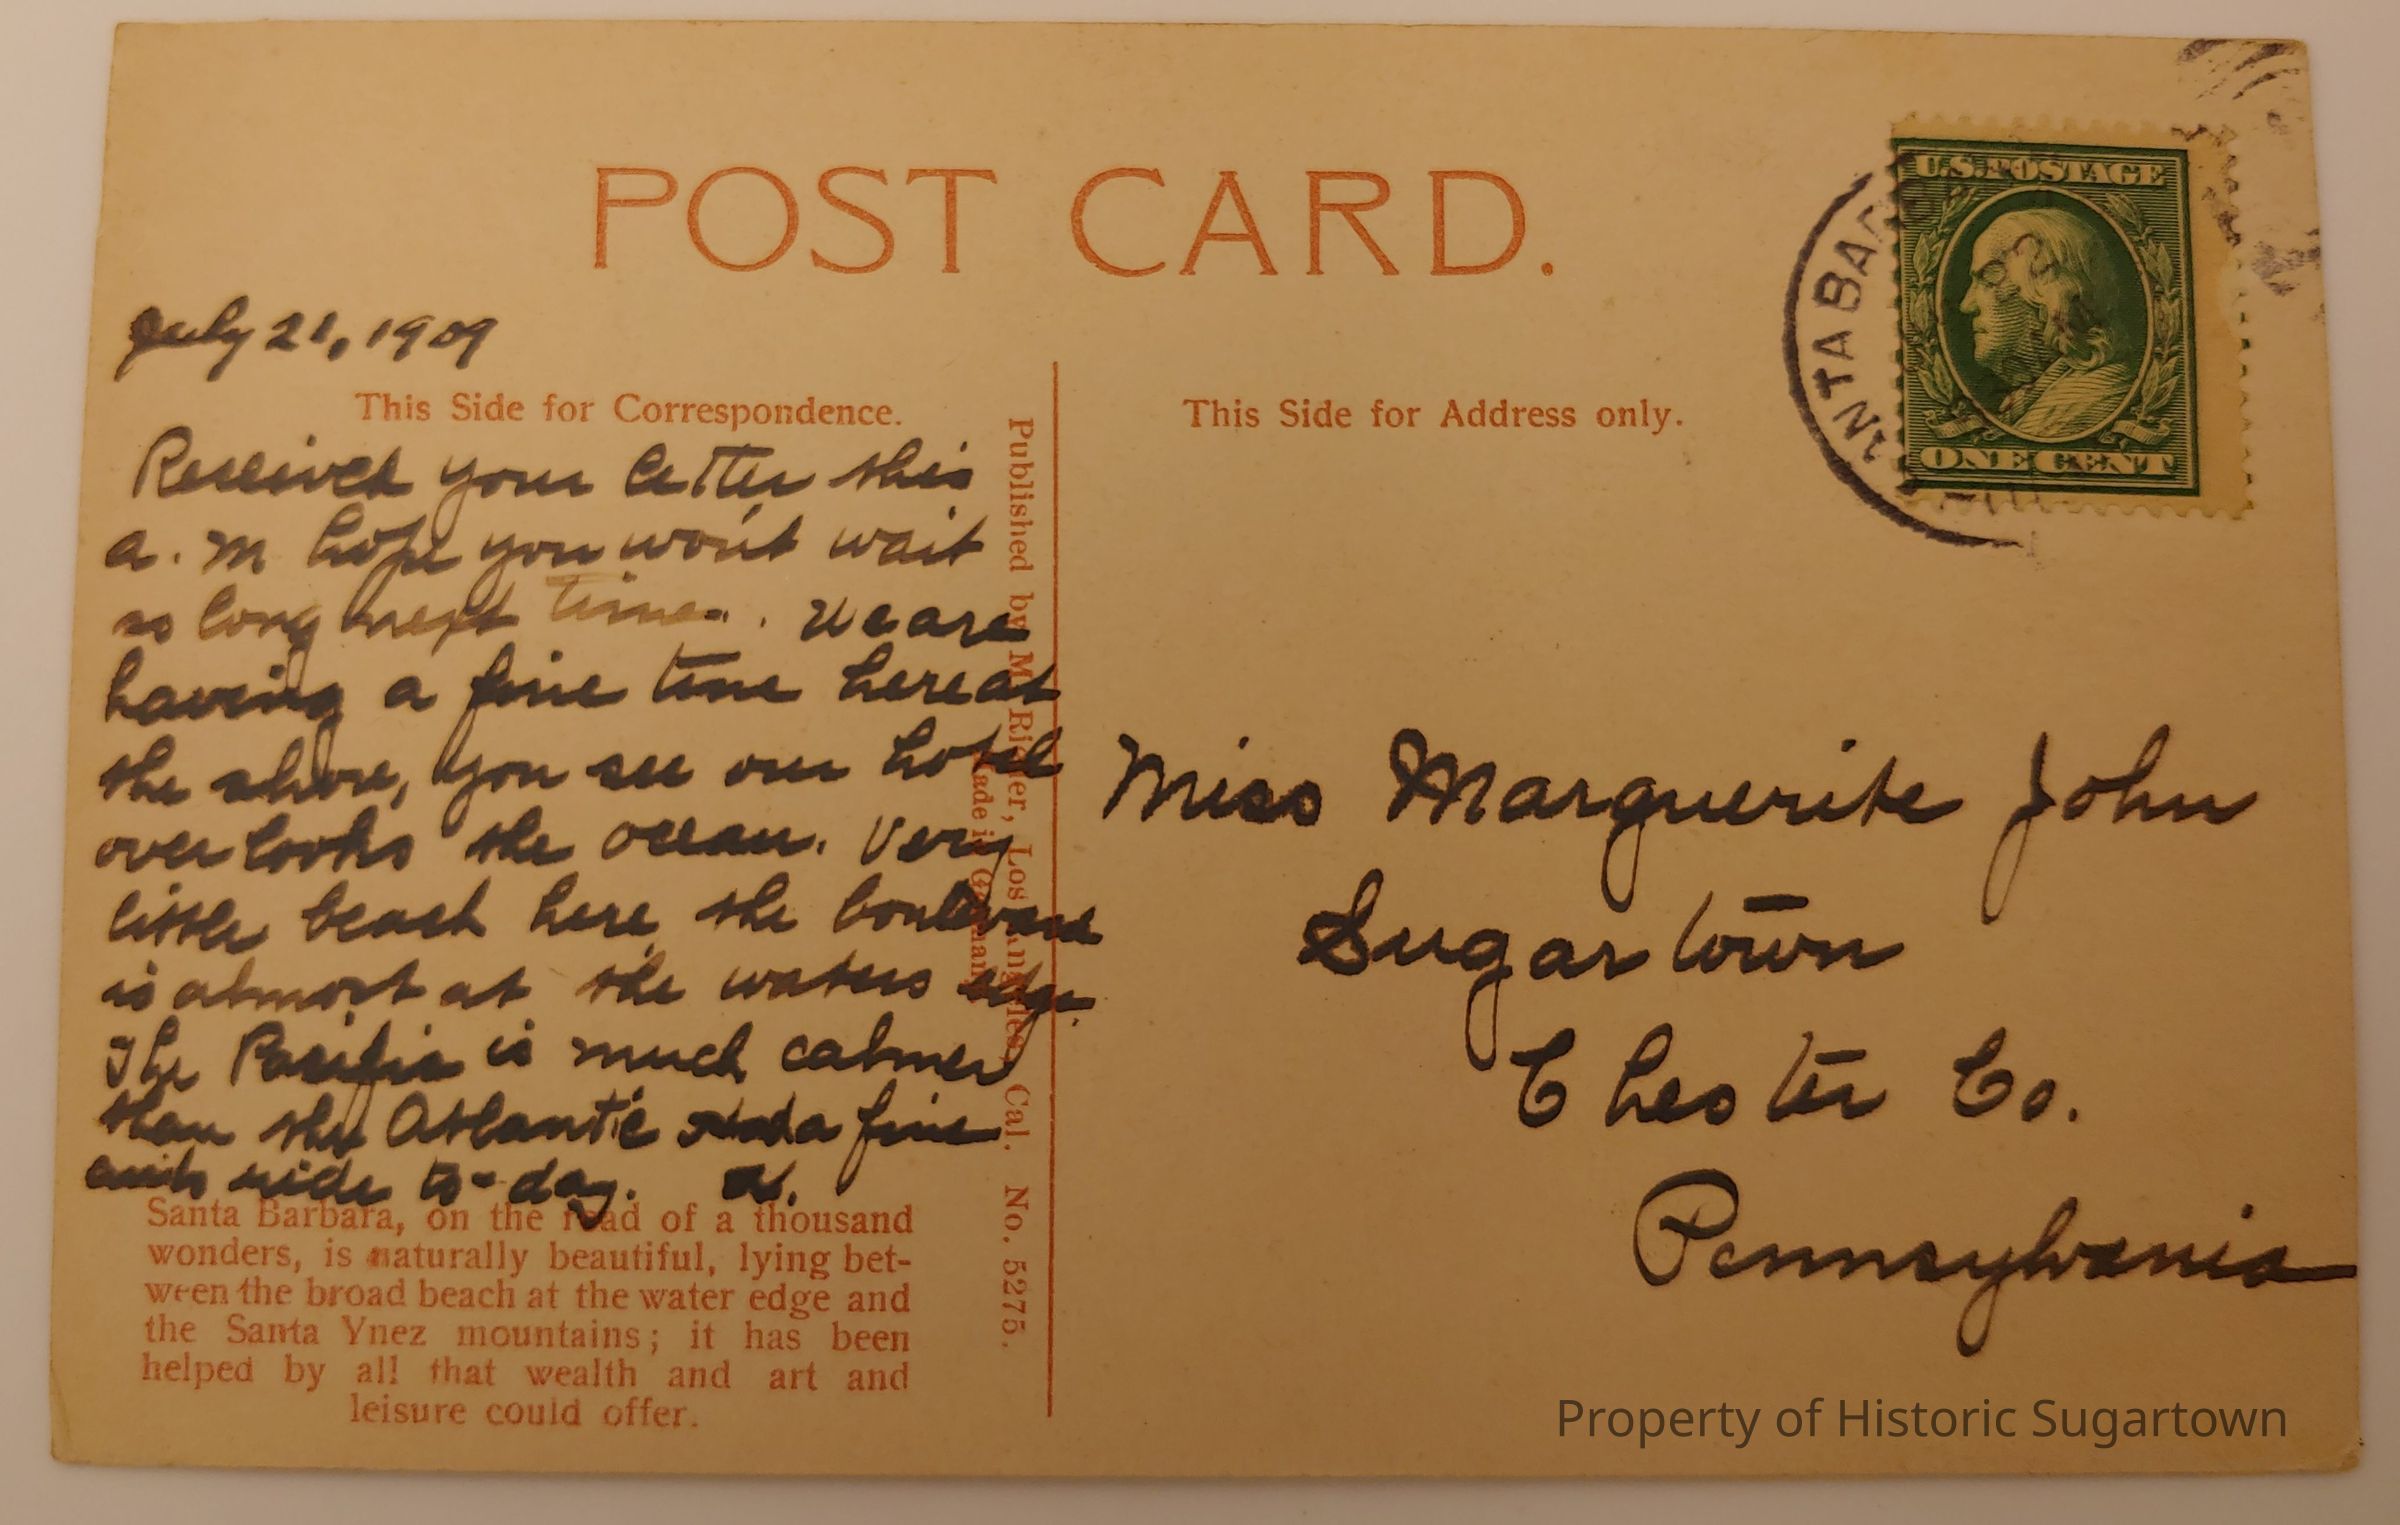 POST CARD.
July 21, 1909
This Side for Correspondence.
Received your letter this
a.m hope you won't wait
so long next time. We are
having a fine time here at
the shore, you see our hotel
over looks the ocean. Very
little beach here, the boulevard
is almost at the waters edge.
The Pacific is much calmer
than the Atlantic a fine
auto ride to-day.
Santa Barbara, on the road of a thousand
wonders, is naturally beautiful, lying bet-
ween the broad beach at the water edge and
the Santa Ynez mountains; it has been
helped by all that wealth and art and
leisure could offer.
Published by M. Rieder, Los Angeles, Cal. No. 5275.
Made in Germany
This Side for Address only.
U.S. POSTAGE
ONE CENT
Miss Marguerite John
Sugartown
Chester Co.
Pennsylvania
Property of Historic Sugartown